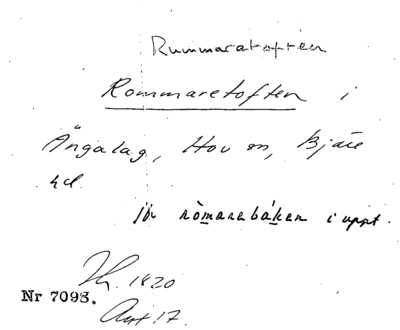 Rummaratoften
Rommaretoften i
Ängalag, Hov sn, Bjäre
hd.
jfr ròmarebáken i uppt.
1820
Nr 7093.
Avt 17.